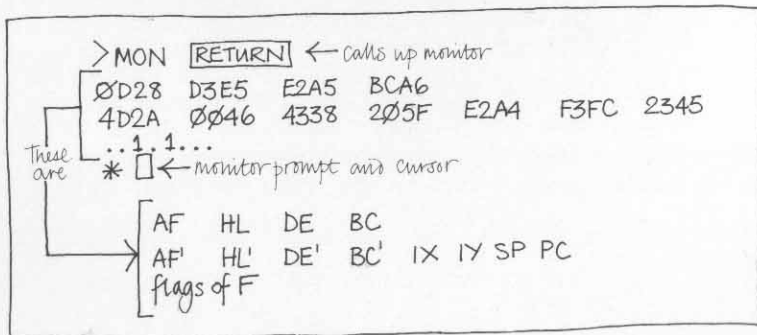 >MON RETURN ← Calls up monitor
ØD28 D3E5 E2A5 BCA6
4D2A ØØ46 4338 2Ø5F E2A4 F3FC 2345
..1.1...
These are
* ← monitor prompt and cursor
AF HL DE BC
AF' HL' DE' BC' IX IY SP PC
flags of F